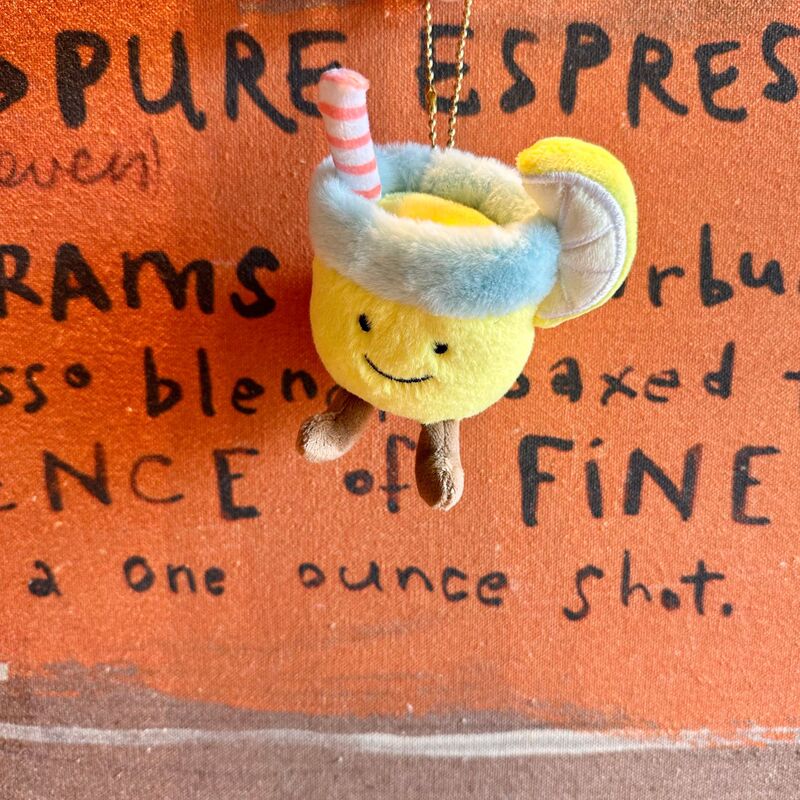 PURE ESPRES
even!
RAMS urbu
sso blen oaxed
ENCE of FINE
a one ounce shot.